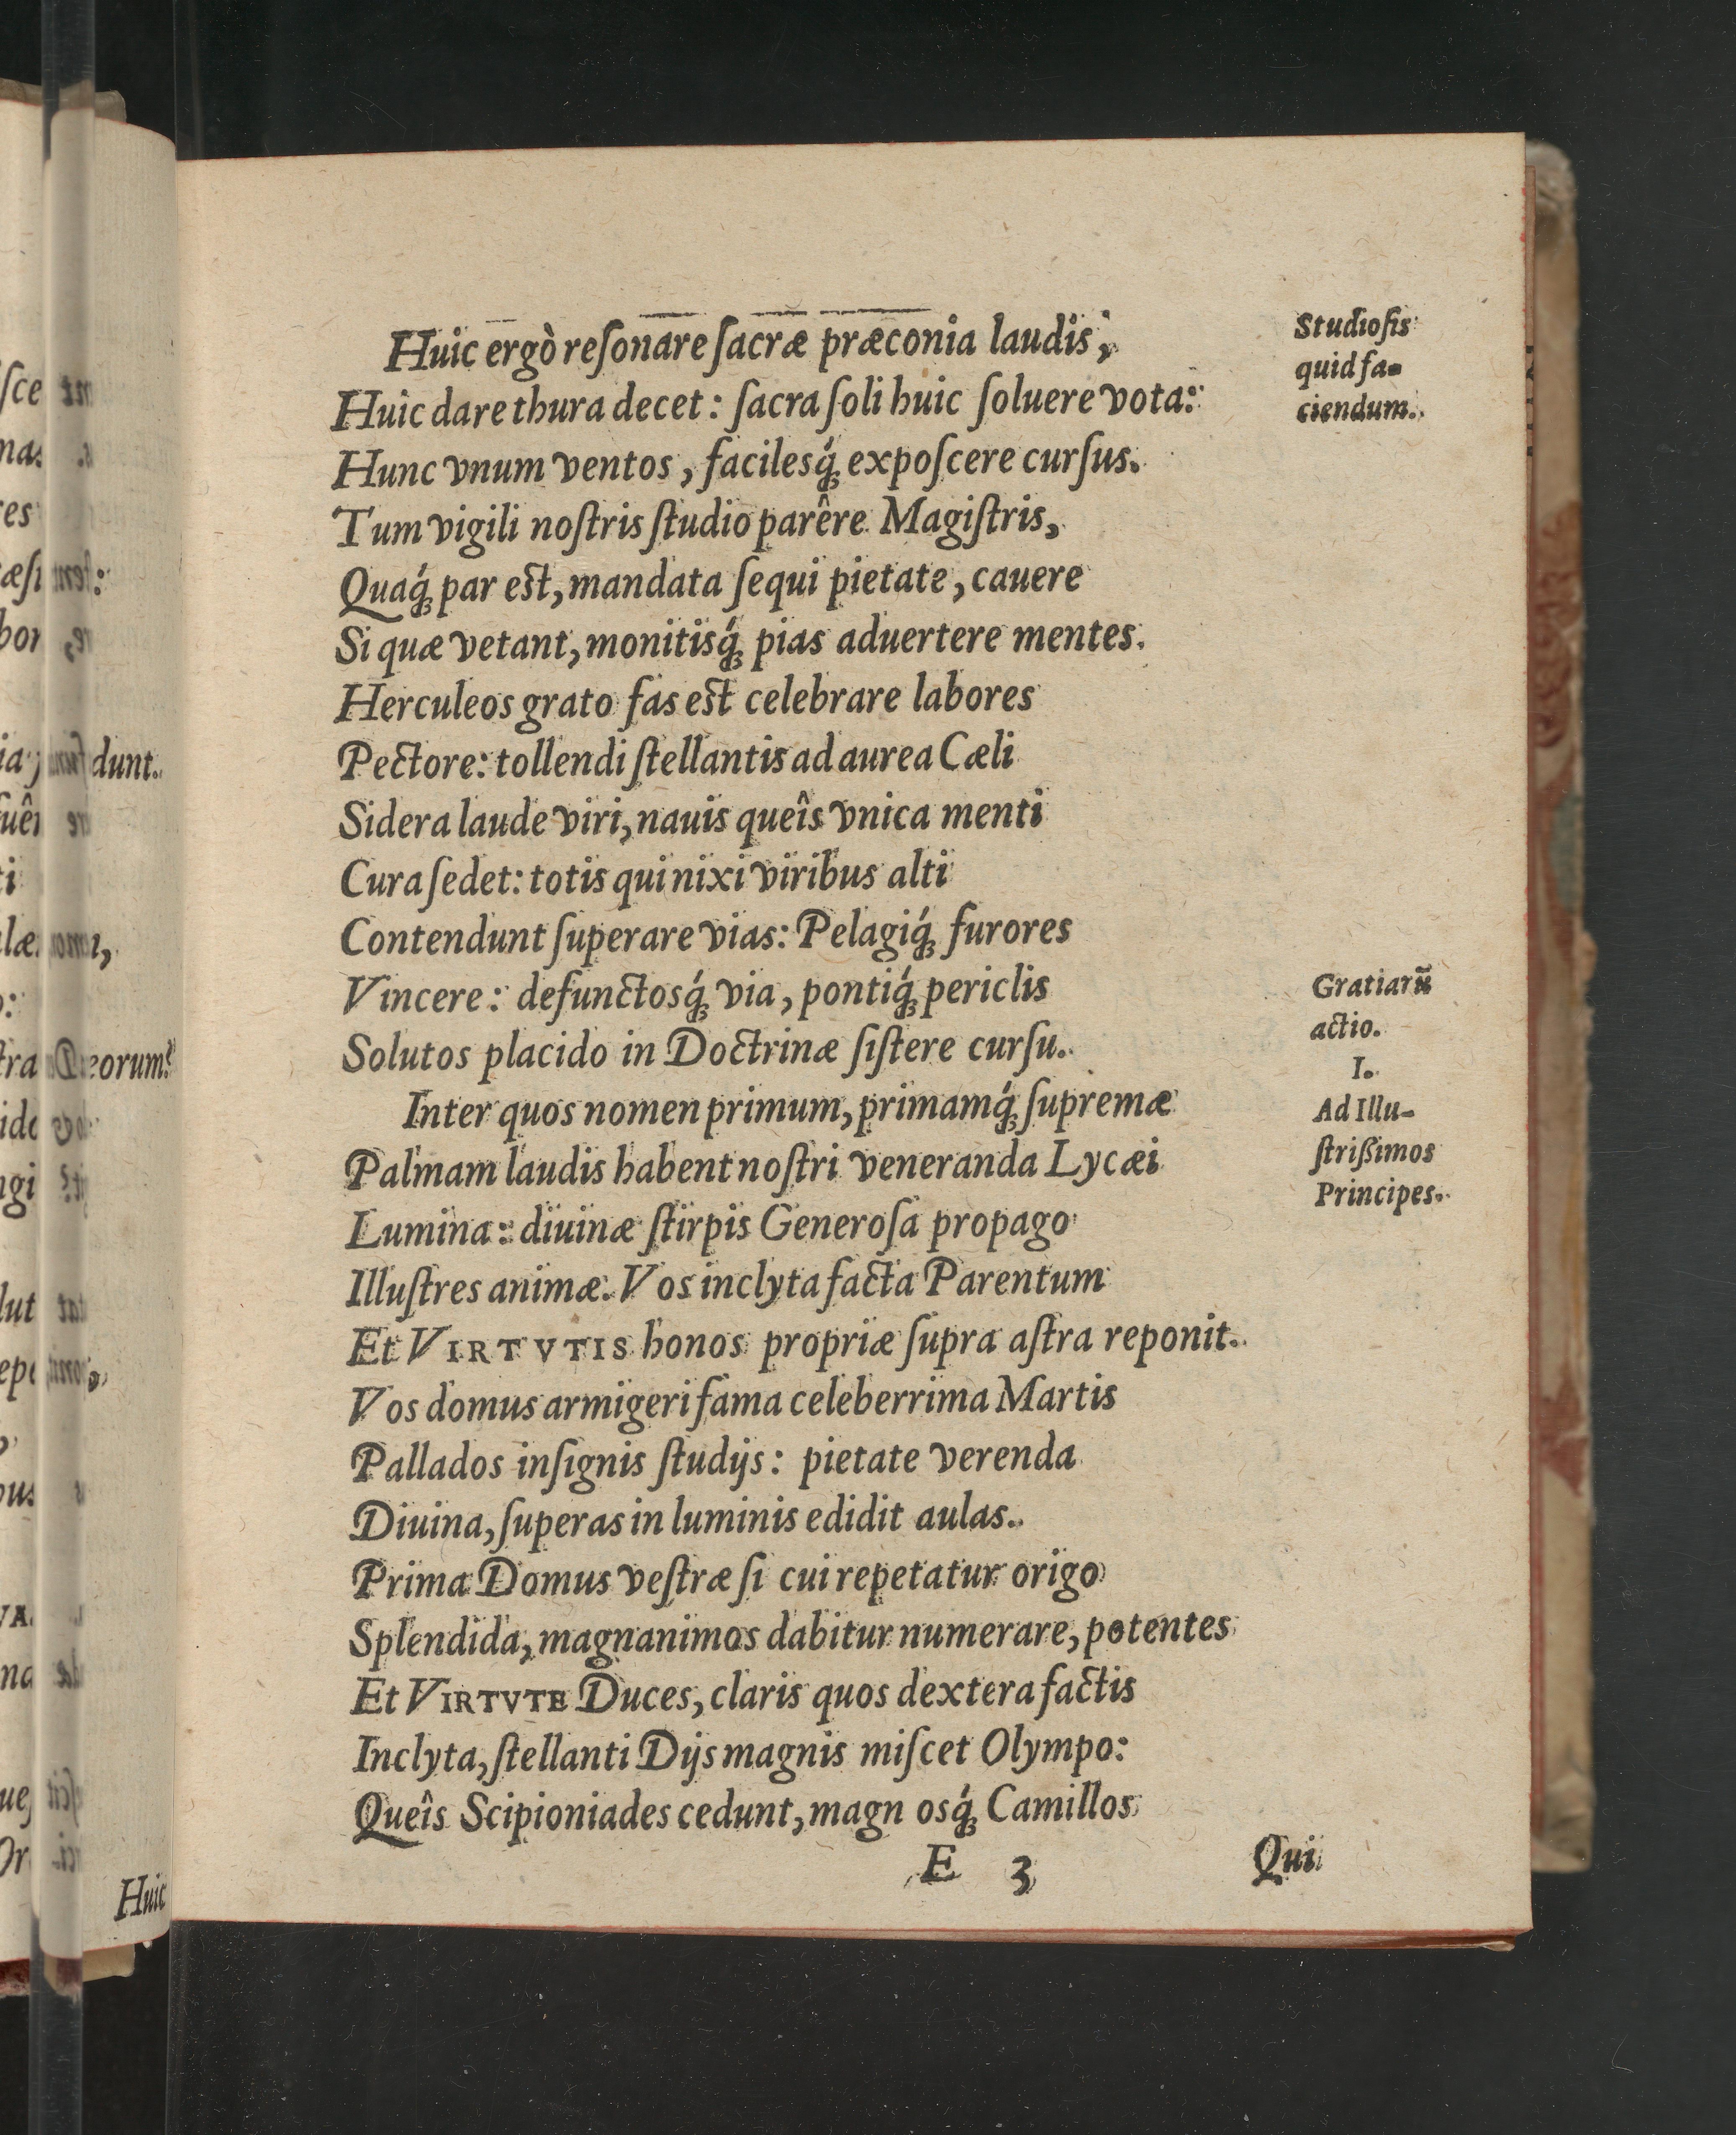 Huic ergò reſonare ſacræ præconia laudis;
Huic dare thura decet: ſacra ſoli huic ſoluere vota:
Hunc vnum ventos, facilesq́; expoſcere curſus.
Tum vigili noſtris ſtudio parêre Magiſtris,
Quaq́; par est, mandata ſequi pietate, cauere
Si quæ vetant, monitisq́; pias aduertere mentes.
Herculeos grato fas est celebrare labores
Pectore: tollendi ſtellantis ad aurea Cæli
Sidera laude viri, nauis queîs vnica menti
Cura ſedet: totis qui nixi viribus alti
Contendunt ſuperare vias: Pelagiq́; furores
Vincere: defunctosq́; via, pontiq́; periclis
Solutos placido in Doctrinæ ſiſtere curſu.
Inter quos nomen primum, primamq́; ſupremæ
Palmam laudis habent noſtri veneranda Lycæi
Lumina: diuinæ ſtirpis Generoſa propago
Illuſtres animæ. Vos inclyta facta Parentum
Et VIRTVTIS honos propriæ ſupra aſtra reponit.
Vos domus armigeri fama celeberrima Martis
Pallados inſignis ſtudijs: pietate verenda
Diuina, ſuperas in luminis edidit aulas.
Prima Domus veſtræ ſi cui repetatur origo
Splendida, magnanimos dabitur numerare, potentes
Et VIRTVTE Duces, claris quos dextera factis
Inclyta, ſtellanti Dijs magnis miſcet Olympo:
Queîs Scipioniades cedunt, magn osq́; Camillos
E 3
Qui
Studioſis
quid fa-
ciendum.
Gratiarũ
actio.
I.
Ad Illu-
ſtrißimos
Principes.
dunt.
Huic